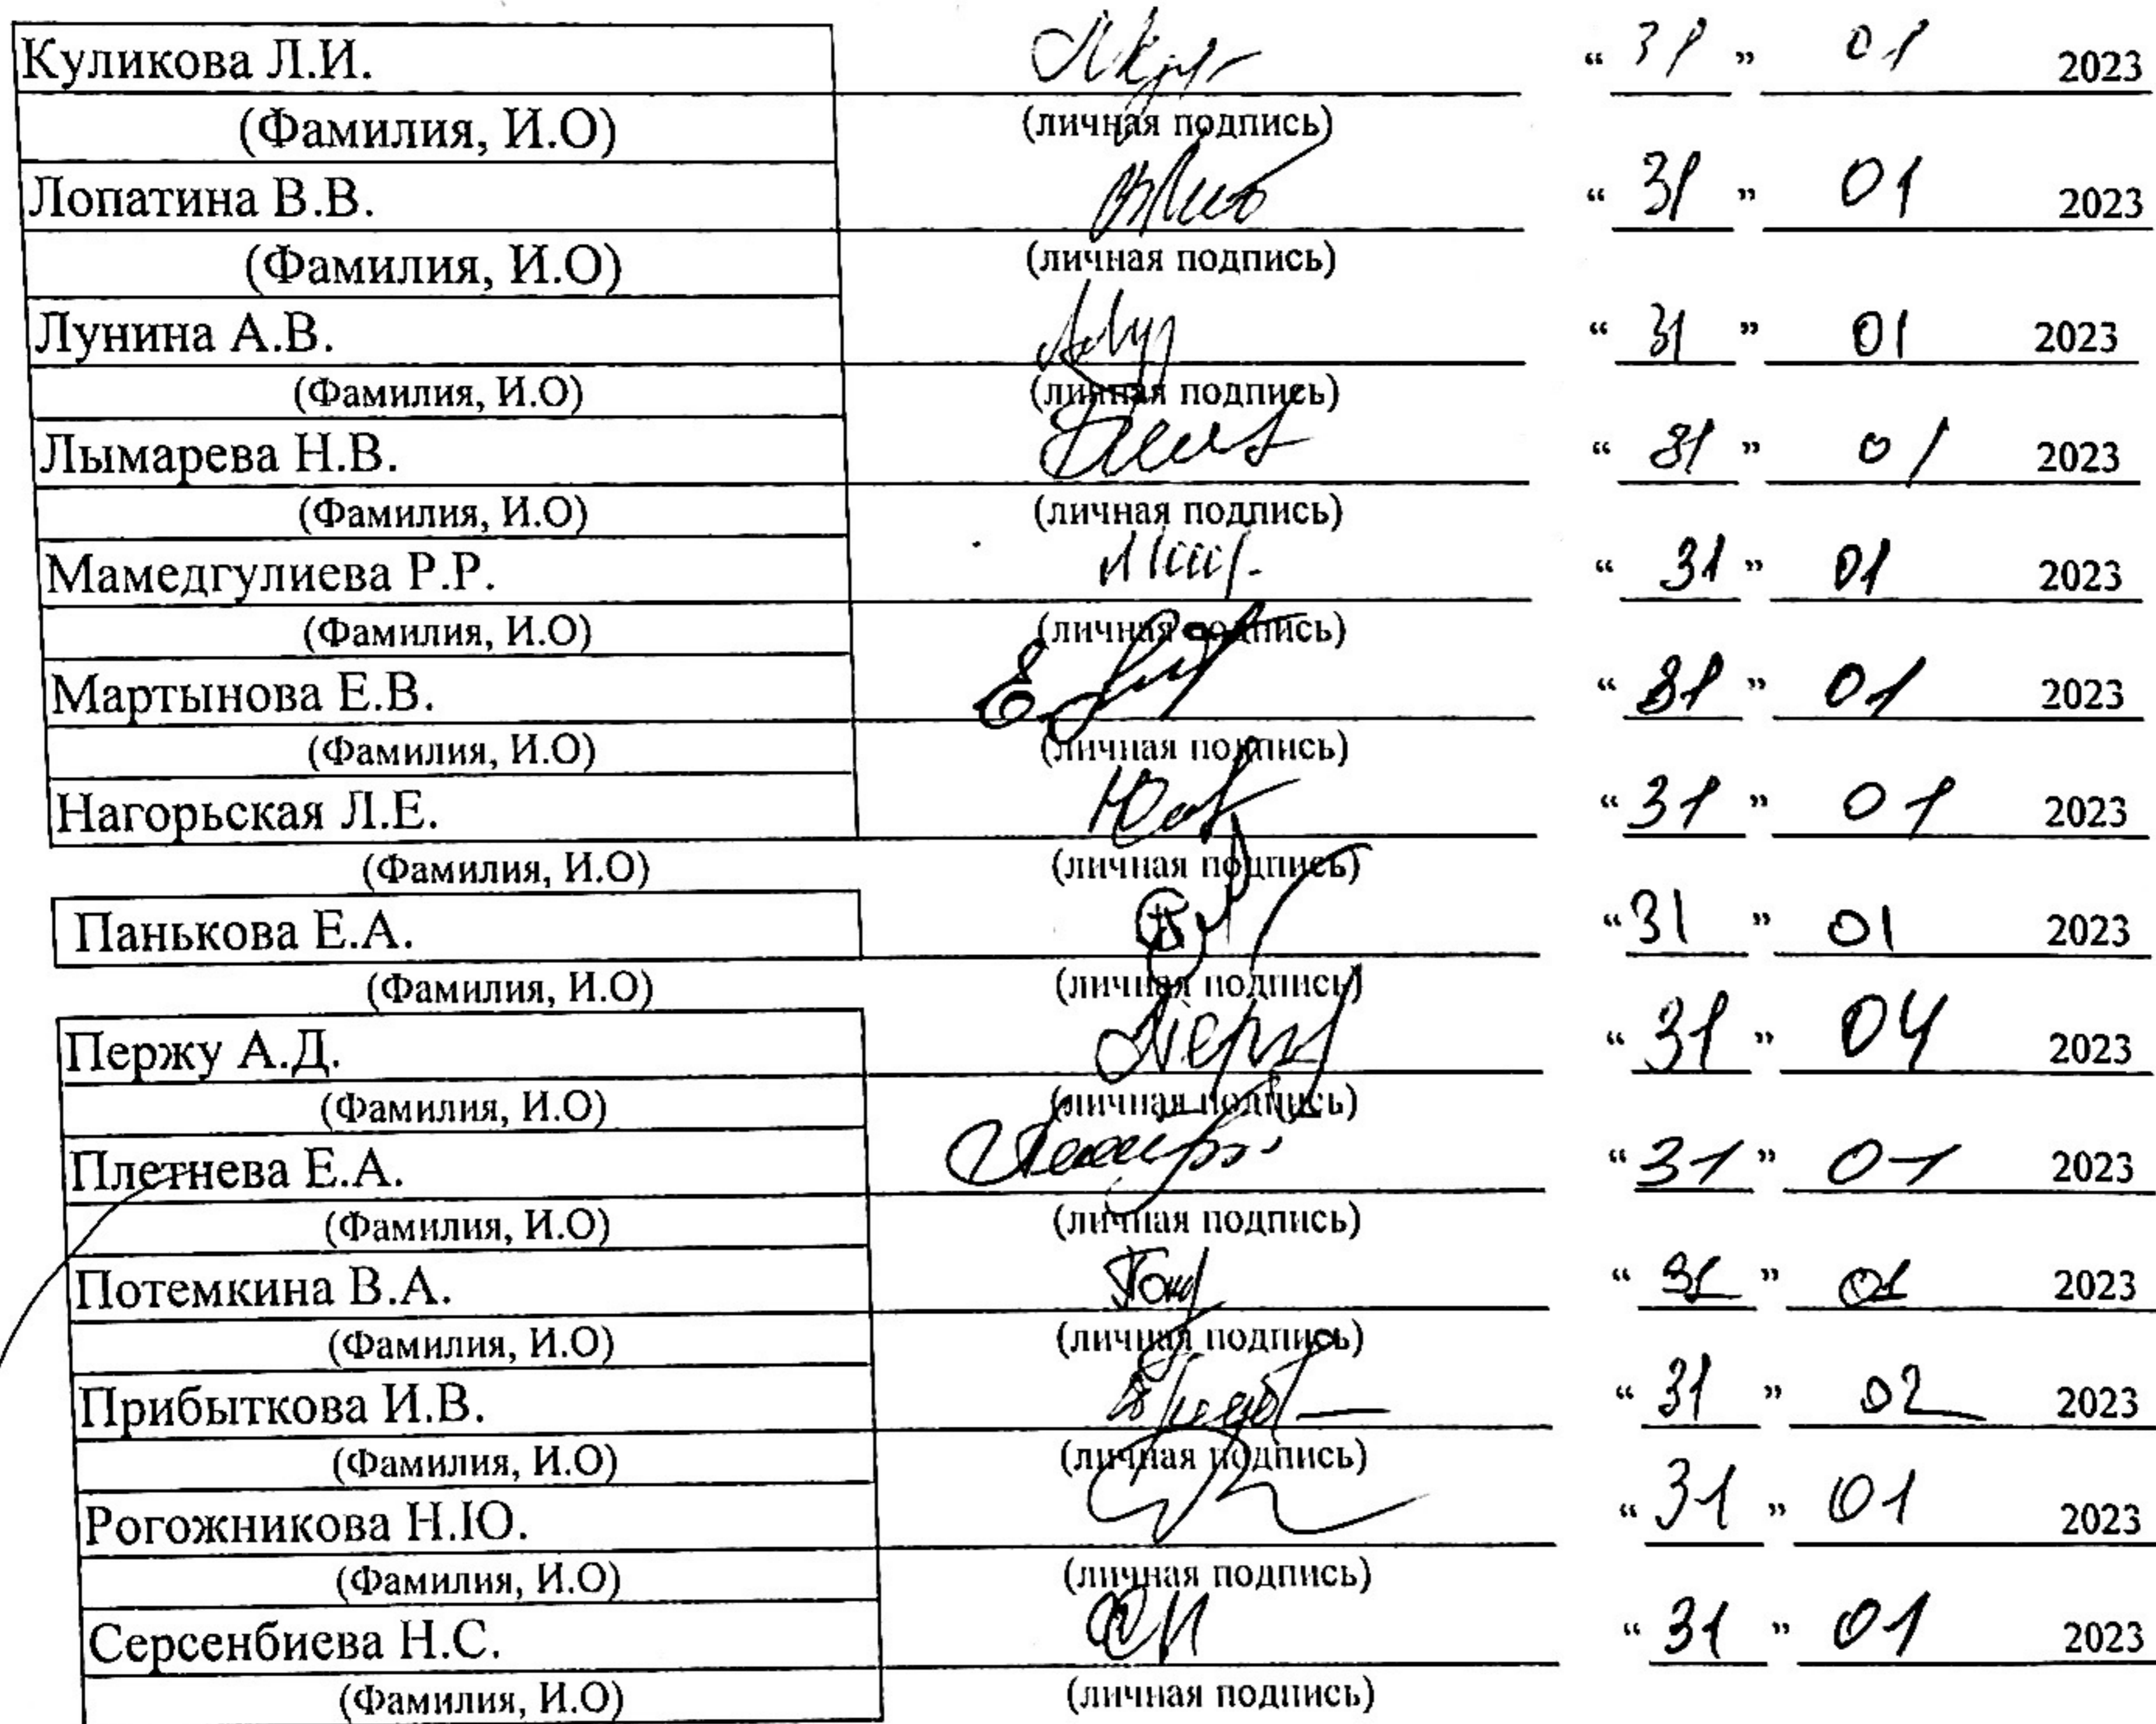 Куликова Л.И. “ 31 ” 01 2023
(Фамилия, И.О) (личная подпись)
Лопатина В.В. “ 31 ” 01 2023
(Фамилия, И.О) (личная подпись)
Лунина А.В. “ 31 ” 01 2023
(Фамилия, И.О) (личная подпись)
Лымарева Н.В. “ 31 ” 01 2023
(Фамилия, И.О) (личная подпись)
Мамедгулиева Р.Р. “ 31 ” 01 2023
(Фамилия, И.О) (личная подпись)
Мартынова Е.В. “ 31 ” 01 2023
(Фамилия, И.О) (личная подпись)
Нагорьская Л.Е. “ 31 ” 01 2023
(Фамилия, И.О) (личная подпись)
Панькова Е.А. “ 31 ” 01 2023
(Фамилия, И.О) (личная подпись)
Пержу А.Д. “ 31 ” 04 2023
(Фамилия, И.О) (личная подпись)
Плетнева Е.А. “ 31 ” 01 2023
(Фамилия, И.О) (личная подпись)
Потемкина В.А. “ 31 ” 01 2023
(Фамилия, И.О) (личная подпись)
Прибыткова И.В. “ 31 ” 02 2023
(Фамилия, И.О) (личная подпись)
Рогожникова Н.Ю. “ 31 ” 01 2023
(Фамилия, И.О) (личная подпись)
Серсенбиева Н.С. “ 31 ” 01 2023
(Фамилия, И.О) (личная подпись)